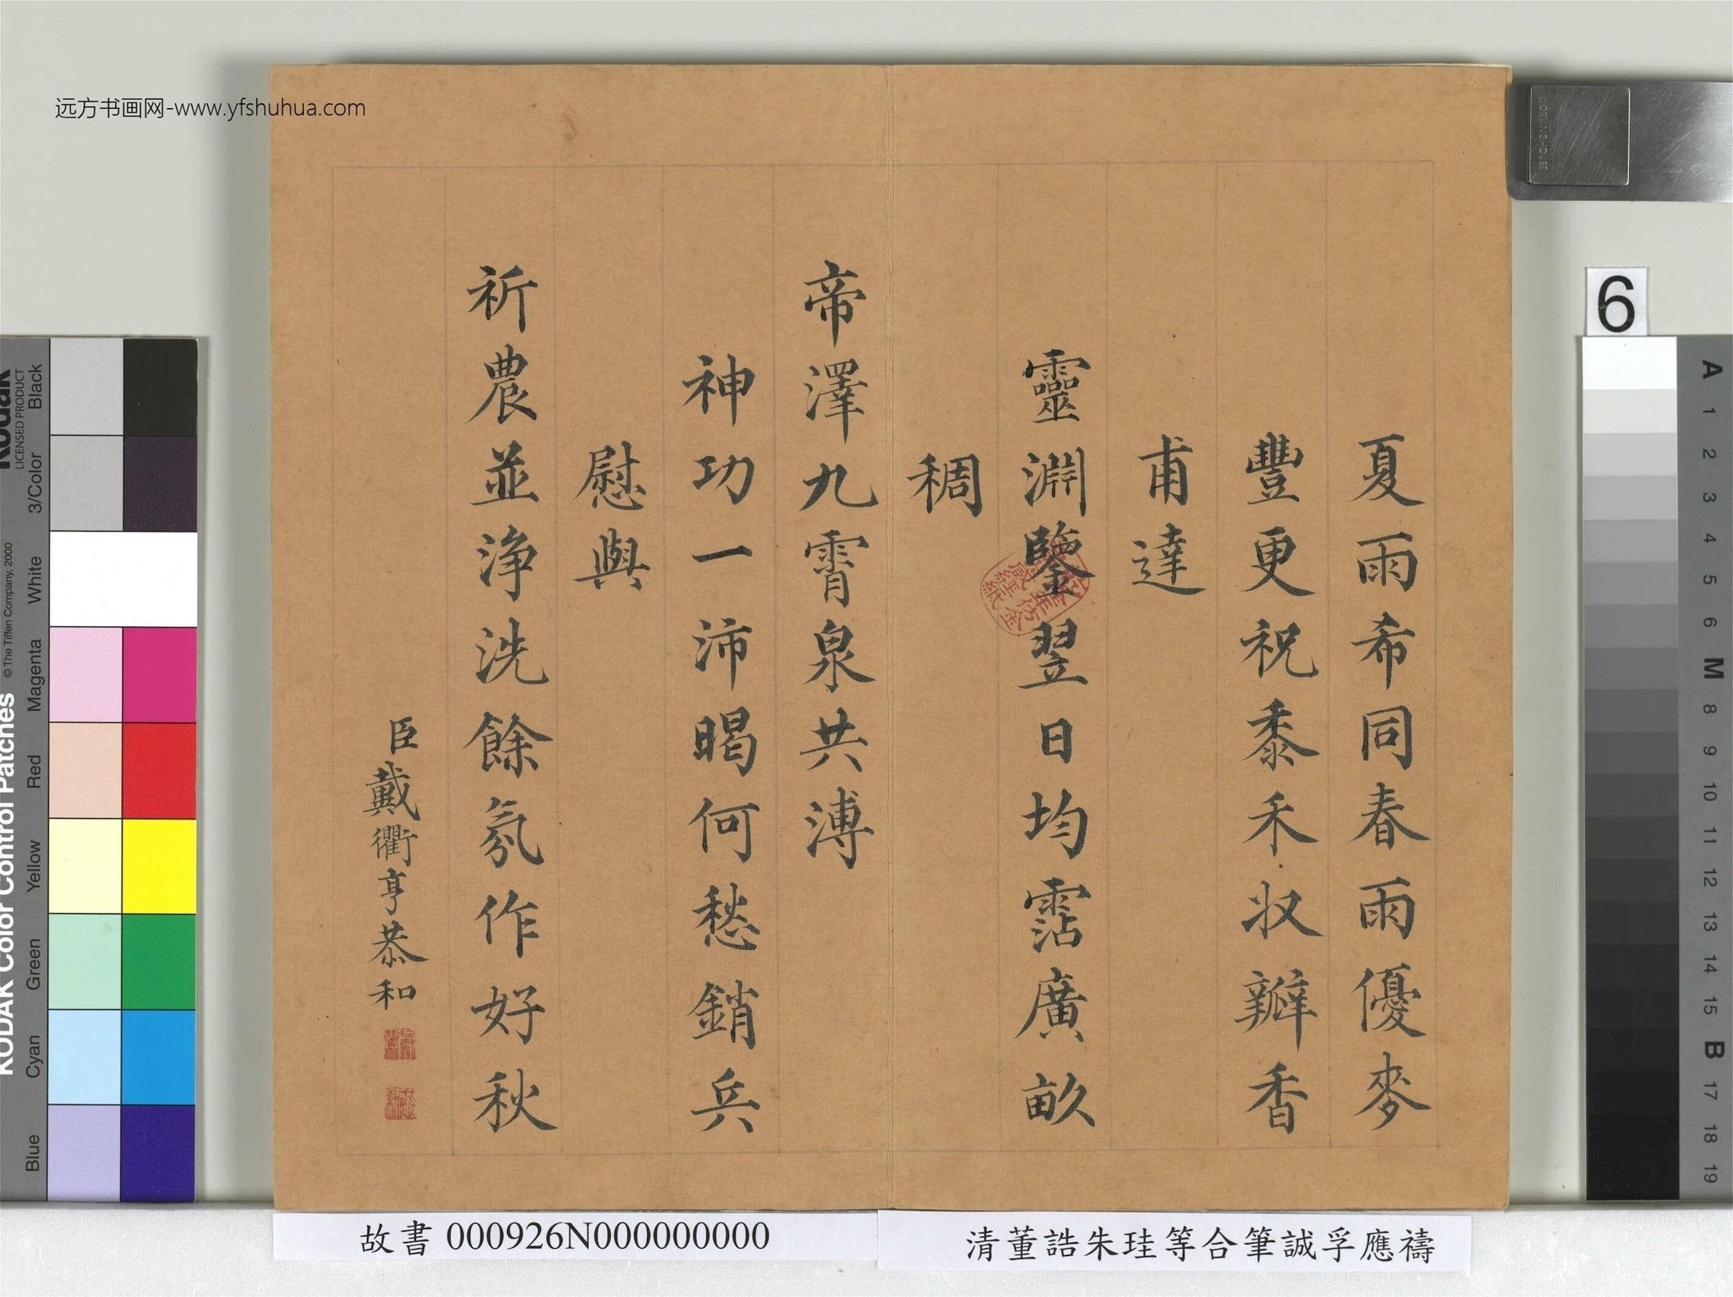 远方书画网-www.yfshuhua.com
夏雨希同春雨優麥
豐更祝黍禾收瓣香
甫達
靈淵鑒翌日均霑廣畝
稠
帝澤九霄泉共溥
神功一沛暍何愁銷兵
慰與
祈農並浄洗餘氛作好秋
臣戴衢亨恭和
故書 000926N000000000
清董誥朱珪等合筆誠孚應禱
6
KODAK Color Control Patches
© The Tiffen Company, 2000
Kodak
LICENSED PRODUCT
Blue
Cyan
Green
Yellow
Red
Magenta
White
3/Color
Black
A
1
2
3
4
5
6
M
8
9
10
11
12
13
14
15
B
17
18
19